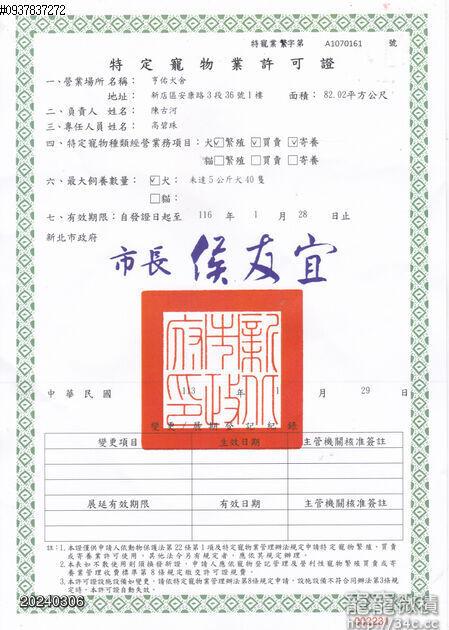 #0937837272
特寵業 繁字第 A1070161 號
特定寵物業許可證
一、營業場所名稱：亨佑犬舍
地址：新店區安康路3段36號1樓 面積：82.02平方公尺
二、負責人姓名：陳古河
三、專任人員姓名：高碧珠
四、特定寵物種類經營業務項目：犬☑繁殖 ☑買賣 ☑寄養
貓□繁殖 □買賣 □寄養
六、最大飼養數量：☑犬：未達5公斤犬40隻
□貓：
七、有效期限：自發證日起至 116 年 1 月 28 日止
新北市政府
市長 侯友宜
新北市政府印
中華民國 113 年 1 月 29 日
變更/展期登記紀錄
變更項目 生效日期 主管機關核准簽註
展延有效期限 有效日期 主管機關核准簽註
註：1.本證僅供申請人依動物保護法第22條第1項及特定寵物業管理辦法規定申請特定寵物繁殖、買賣
或寄養業許可使用，其他法令另有規定者，應依其規定辦理。
2.本表如不敷使用則須換發新證，申請人應依寵物登記管理及營利性寵物繁殖買賣或寄
養業管理收費標準第8條規定繳交許可證規費。
3.本許可證設施設備如變更，請依特定寵物業管理辦法第8條規定申請，設施設備不符合同辦法第3條規
定時，本許可證自動失效。
20240306
002231
龍龍微積
http://34c.cc